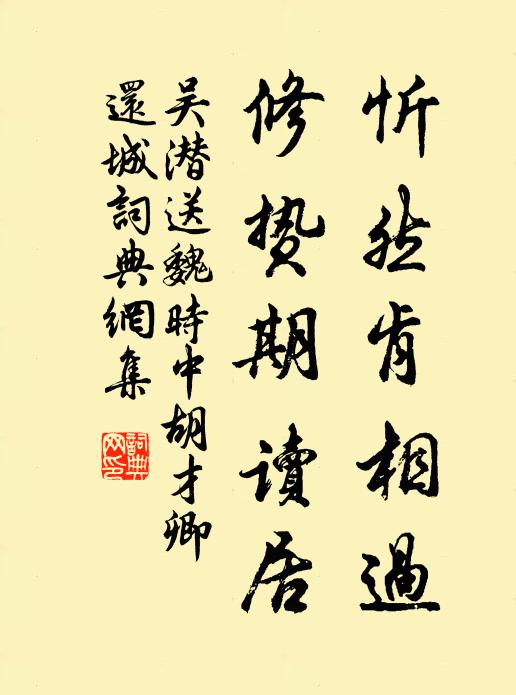 忻然肯相過
修贄期讀居
吴潛送魏時中胡才卿
還城詞典網集
詞典網印